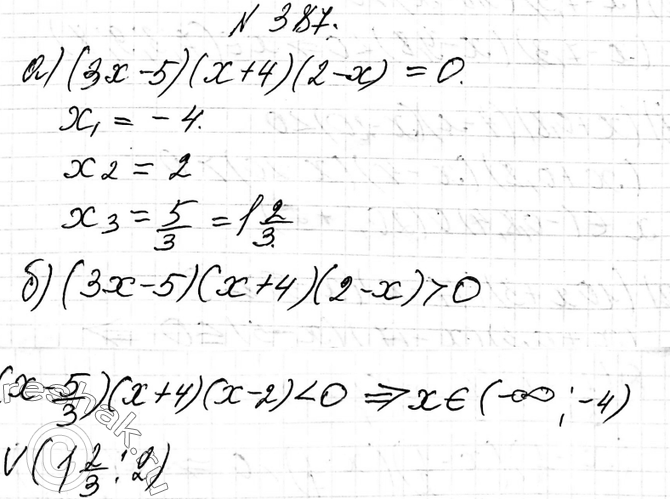 N 387.
а) (3x-5)(x+4)(2-x) = 0.
x₁ = -4.
x₂ = 2
x₃ = 5/3 = 1 2/3.
б) (3x-5)(x+4)(2-x) > 0
(x-5/3)(x+4)(x-2) < 0 ⇒ x ∈ (-∞; -4)
∨ (1 2/3; 2)